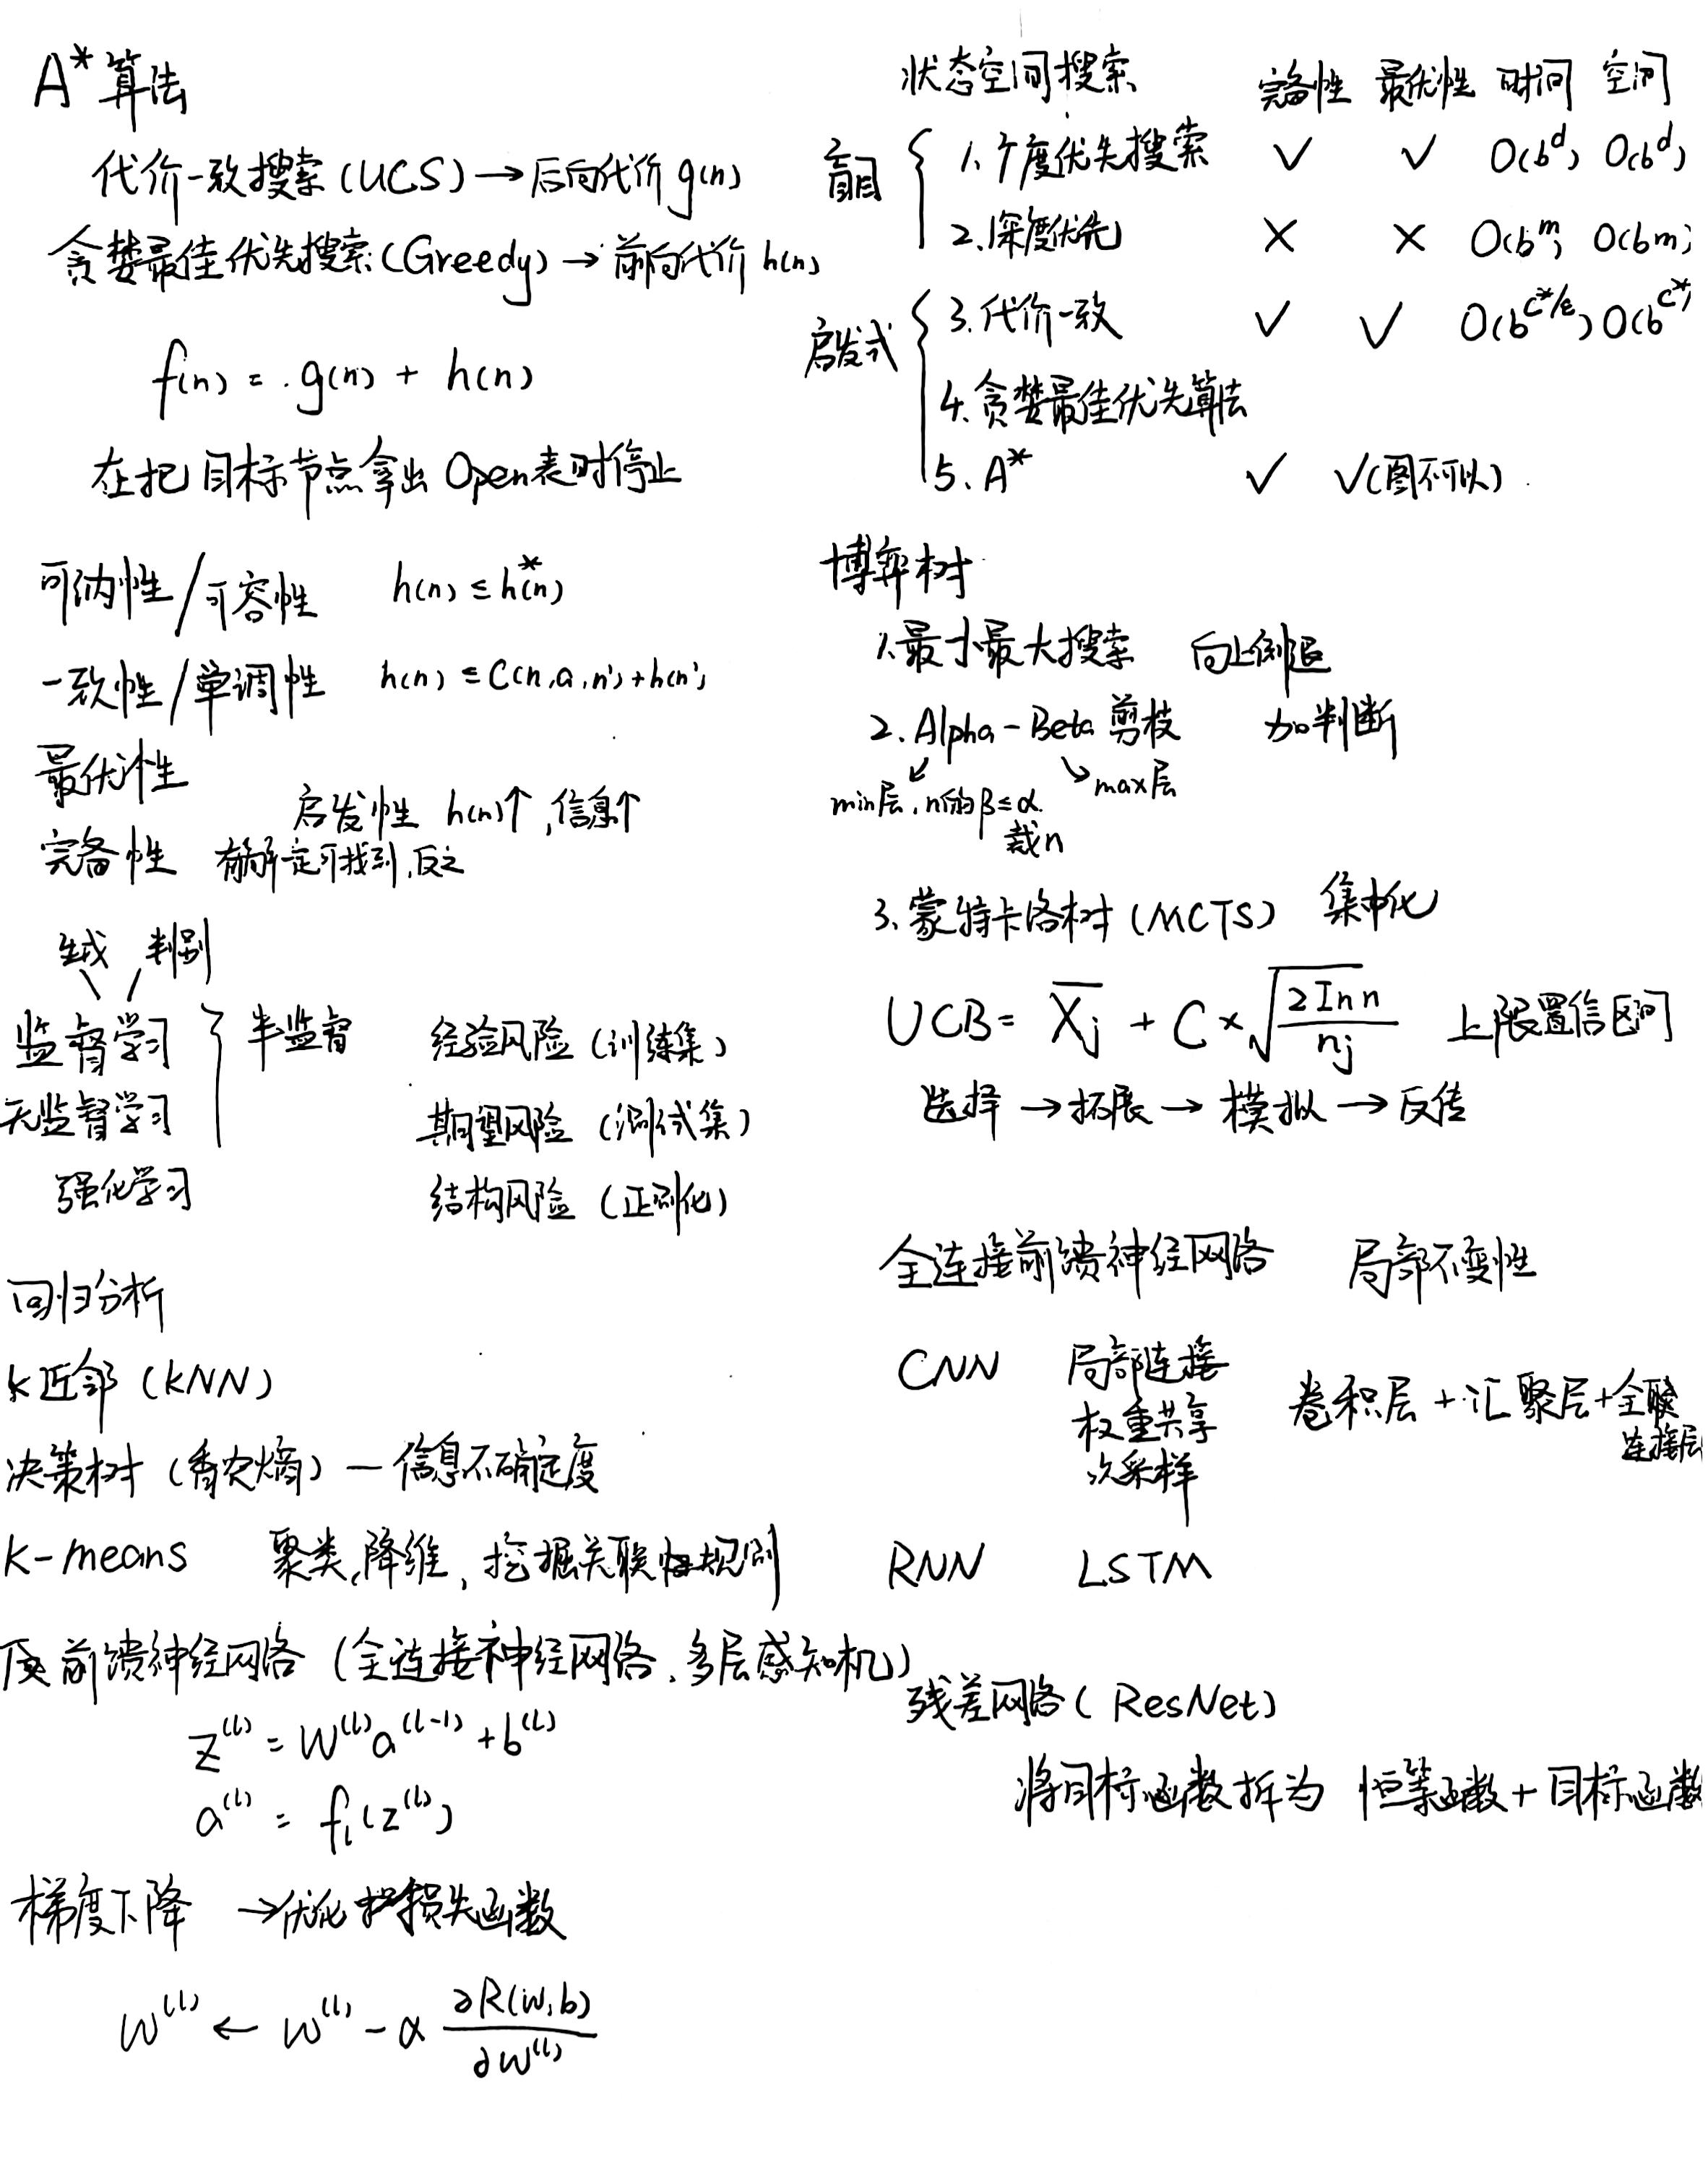 A* 算法
代价一致搜索 (UCS) → 后向代价 g(n)
贪婪最佳优先搜索 (Greedy) → 前向代价 h(n)
f(n) = g(n) + h(n)
在把目标节点拿出 Open表时停止
可纳性/可容性 h(n) ≤ h*(n)
一致性/单调性 h(n) ≤ C(n,a,n')+h(n')
最优性
启发性 h(n)↑, 信息↑
完备性 有解一定可找到,反之
生成 判别
监督学习 } 半监督 经验风险 (训练集)
无监督学习 期望风险 (测试集)
强化学习 结构风险 (正则化)
回归分析
k近邻 (kNN)
决策树 (香农熵) — 信息不确定度
K-means 聚类,降维,挖掘关联性规则
前馈神经网络 (全连接神经网络,多层感知机)
z^(l) = W^(l) a^(l-1) + b^(l)
a^(l) = f_l(z^(l))
梯度下降 → 优化损失函数
W^(l) ← W^(l) - α ∂R(W,b)/∂W^(l)
状态空间搜索 完备性 最优性 时间 空间
盲目 { 1. 广度优先搜索 ✓ ✓ O(b^d) O(b^d)
2. 深度优先 × × O(b^m) O(bm)
启发式 { 3. 代价一致 ✓ ✓ O(b^C*/ε) O(b^C*/
4. 贪婪最佳优先算法
5. A* ✓ ✓(图不可以)
博弈树
1. 最小最大搜索 向上倒退
2. Alpha-Beta 剪枝 加判断
min层, n的β≤α 裁n max层
3. 蒙特卡洛树 (MCTS) 集中化
UCB = X̄j + C × √(2Inn/nj) 上限置信区间
选择 → 拓展 → 模拟 → 反传
全连接前馈神经网络 局部不变性
CNN 局部连接
权重共享 卷积层 + 汇聚层 + 全连接层
次采样
RNN LSTM
残差网络 (ResNet)
将目标函数拆为 恒等函数 + 目标函数